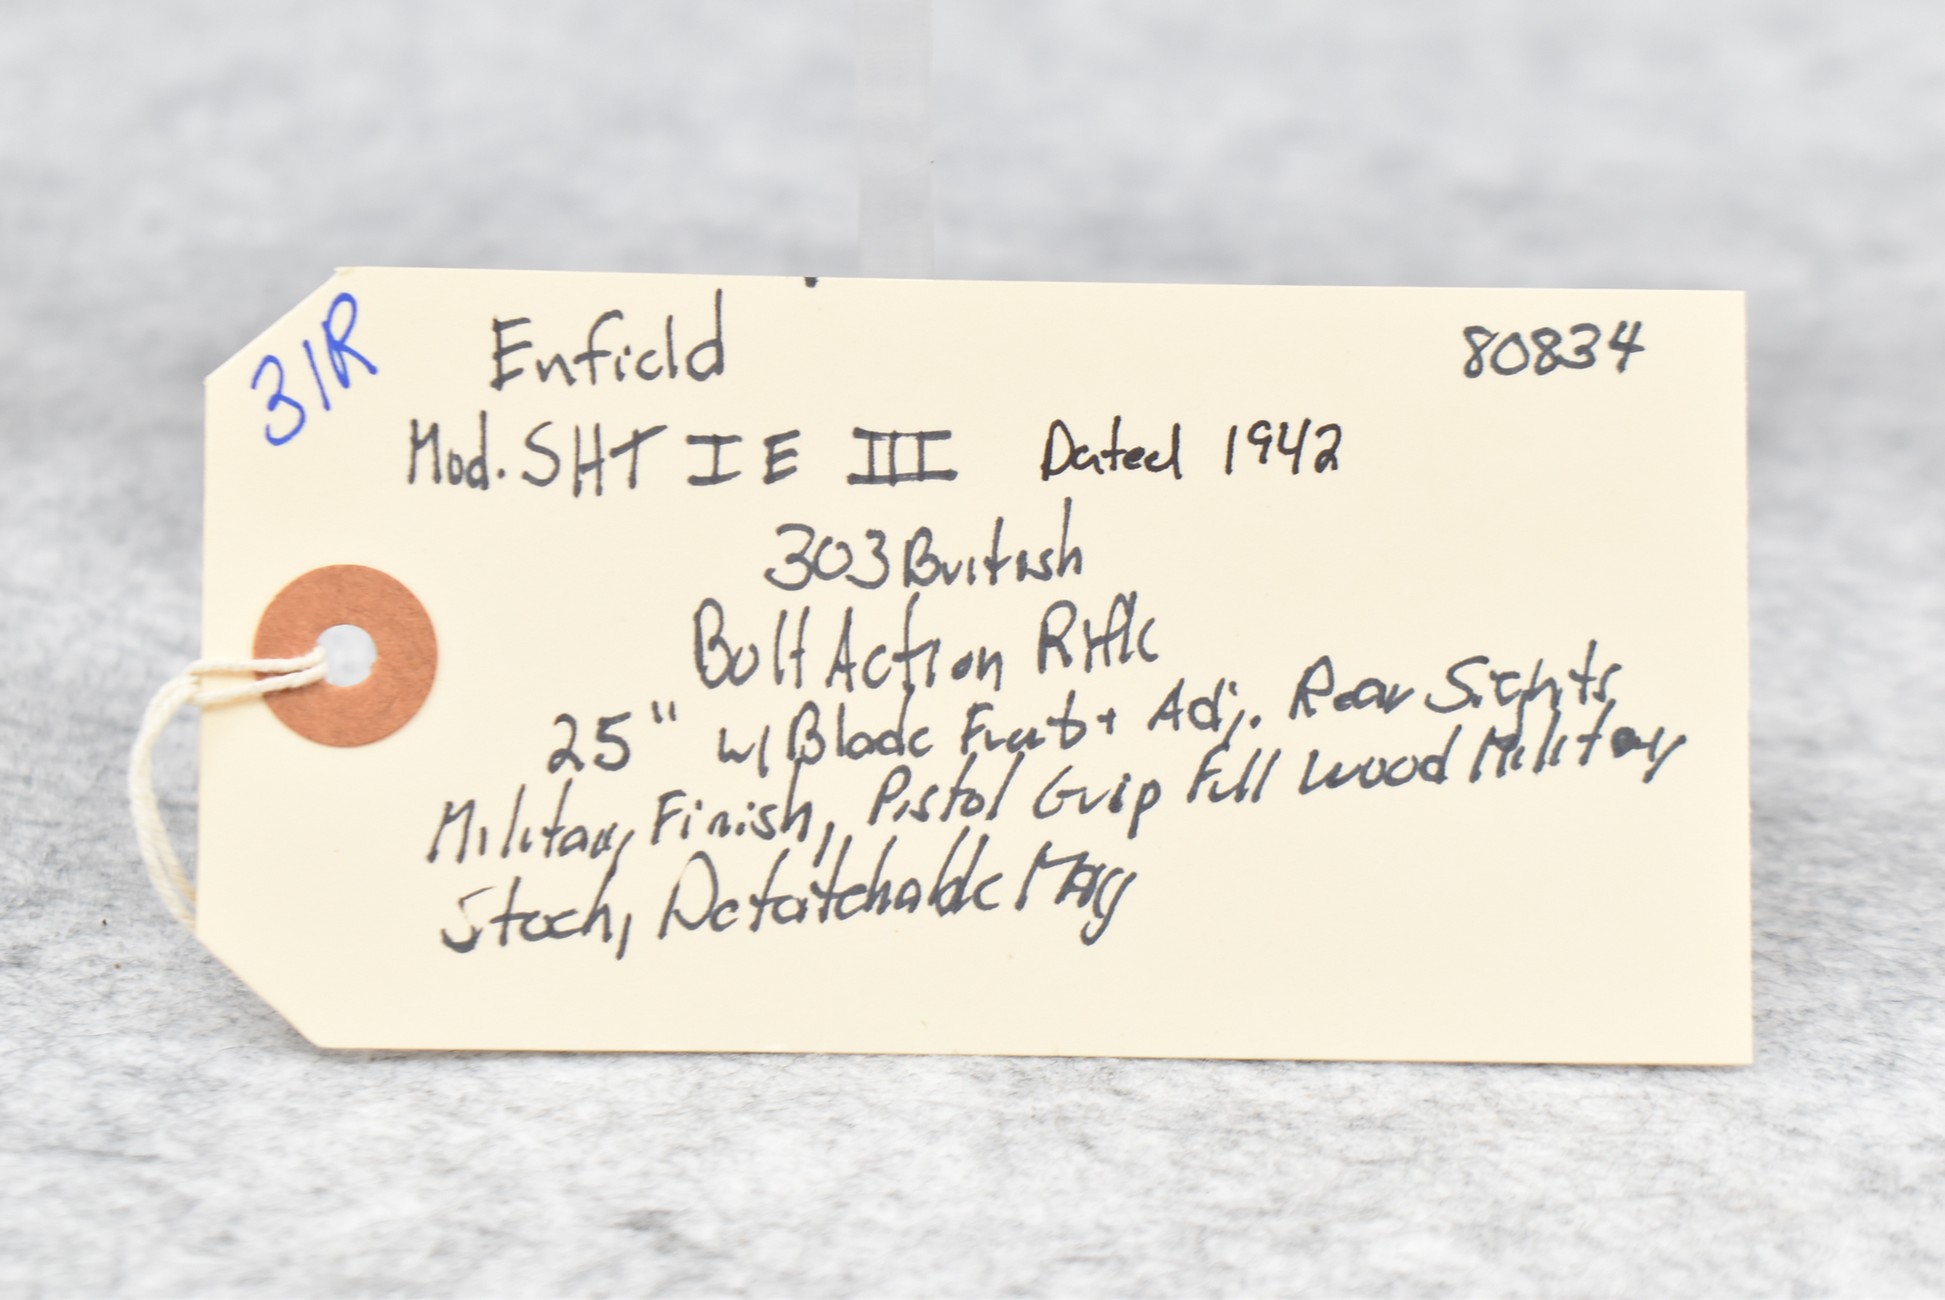 31R
Enfield 80834
Mod. SHT I E III Dated 1942
303 British
Bolt Action Rifle
25" w/ Blade Front + Adj. Rear Sights
Military Finish, Pistol Grip Full Wood Military
Stock, Detatchable Mag